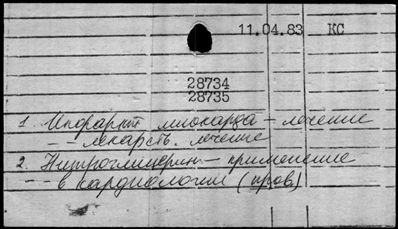 11.04.83 КС
28734
28735
1. Инфаркт миокарда – лечение
– – – лекарств. лечение
2. Нитроглицерин – применение
– – в кардиологии (пров)